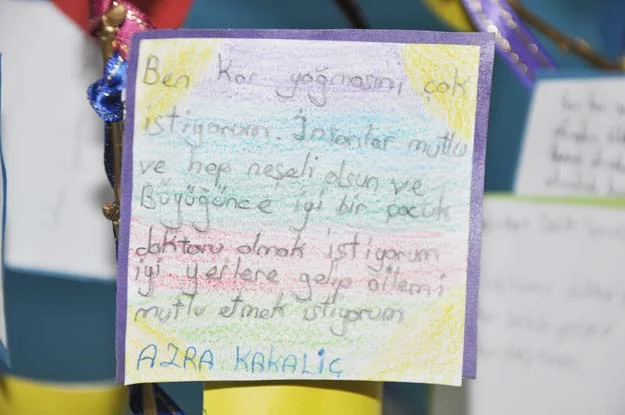 Ben Kar yağmasını çok
istiyorum. İnsanlar mutlu
ve hep neşeli olsun ve
Büyüğünce iyi bir çocuk
doktoru olmak istiyorum
iyi yerilere gelip ailemi
mutlu etmek istiyorum
AZRA KAKALİÇ